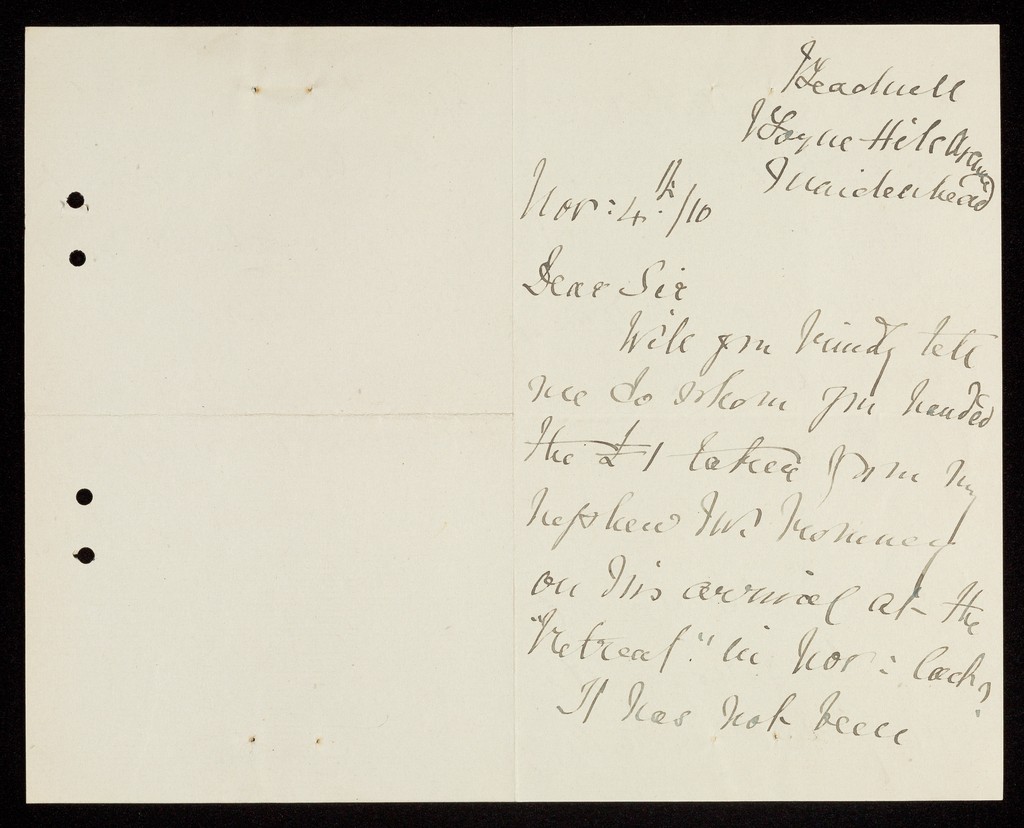 Beadnell
Boyne Hill Avenue
Maidenhead
Nov: 4th/10
Dear Sir
Will you kindly tell
me to whom you handed
the £1 taken from my
nephew Mr. Romney
on his arrival at the
"Retreat" in Nov: last?
It has not been